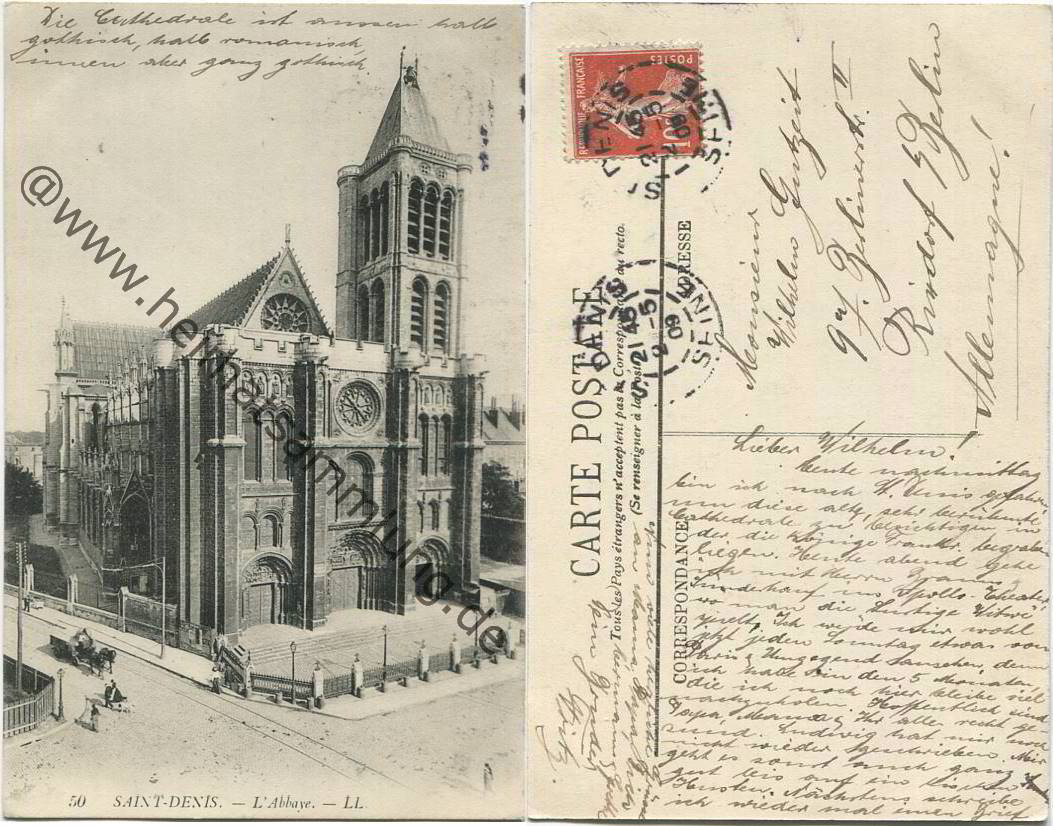 Die Cathedrale ist aussen halb
gothisch, halb romanisch,
innen aber ganz gothisch
@www.heimatsammlung.de
50 SAINT-DENIS. — L'Abbaye. — LL.
REPUBLIQUE FRANÇAISE
POSTES
10
ST DENIS
21 45
5
09
SEINE
ST DENIS
21 45
9 -5
09
SEINE
CARTE POSTALE
Tous les Pays étrangers n'acceptent pas la Correspondance au recto.
(Se renseigner à la Poste)
ADRESSE
CORRESPONDANCE
Monsieur
Wilhelm Gutzeit
9a/. Berlinerstr. II
Rixdorf b/Berlin
Allemagne!
Lieber Wilhelm!
Heute nachmittag
bin ich nach St. Denis gefahren,
um diese alte, sehr berühmte
Cathedrale zu besichtigen in
der die Könige Frankr. begraben
liegen. Heute abend gehe
ich mit Herrn
ins Apollo-Theater
wo man die "Lustige Witwe"
spielt. Ich werde mir wohl
jetzt jeden Sonntag etwas von
Paris & Umgegend ansehen, denn
ich habe in den 5 Monaten
die ich noch hier bleibe viel
nachzuholen. Hoffentlich sind
Papa, Mama & Ihr alle recht ge-
sund. Ludwig hat mir noch
nicht wieder geschrieben. Mir
geht es sonst auch ganz
gut bis auf ein bischen
Husten. Nächstens schreibe
ich wieder mal einen Brief
an Mama
Dein Bruder
Fritz.